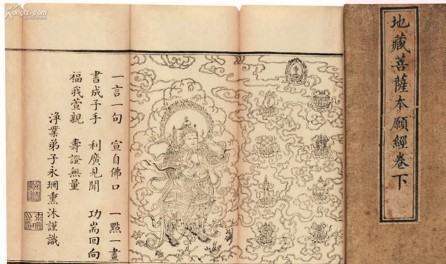 地藏菩薩本願經卷下
一言一句　宣自佛口　一點一畫
書成予手　利廣見聞　功耑回向
福我萱親　壽證無量
淨業弟子永珊熏沐謹識